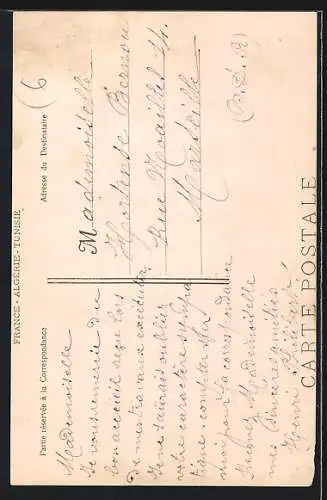 FRANCE - ALGÉRIE - TUNISIE
Partie réservée à la Correspondance
Adresse du Destinataire
Mademoiselle
Je vous remercie du
bon accueil reçu lors
de mes travaux exécutés,
Je ne saurais oublier
votre caractère sympa
thique
pour la correspondance
Recevez Mademoiselle
mes sincères amitiés
Henri
Mademoiselle
Hortense
Rue 14.
Marseille
(B. D. R)
(6
CARTE POSTALE